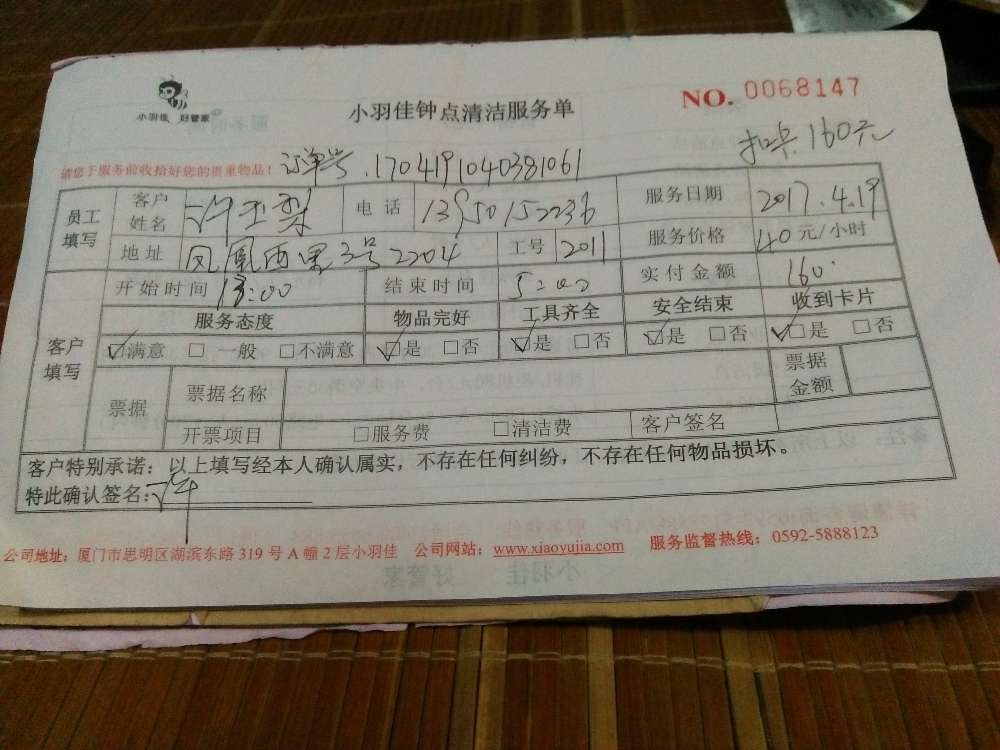 小羽佳 好管家
小羽佳钟点清洁服务单
NO. 0068147
扣卡160元
请您于服务前收拾好您的贵重物品!
订单号.1704191040381061
员工填写 客户姓名 许玉梨 电话 13950152236 服务日期 2017.4.19
地址 凤凰西里3号2204 工号 2011 服务价格 40元/小时
开始时间 13:00 结束时间 5:00 实付金额 160
客户填写 服务态度 物品完好 工具齐全 安全结束 收到卡片
☑满意 □一般 □不满意 ☑是 □否 ☑是 □否 ☑是 □否 ☑是 □否
票据 票据名称 票据金额
开票项目 □服务费 □清洁费 客户签名
客户特别承诺:以上填写经本人确认属实,不存在任何纠纷,不存在任何物品损坏。
特此确认签名:许
公司地址:厦门市思明区湖滨东路319号A幢2层小羽佳 公司网站:www.xiaoyujia.com 服务监督热线:0592-5888123